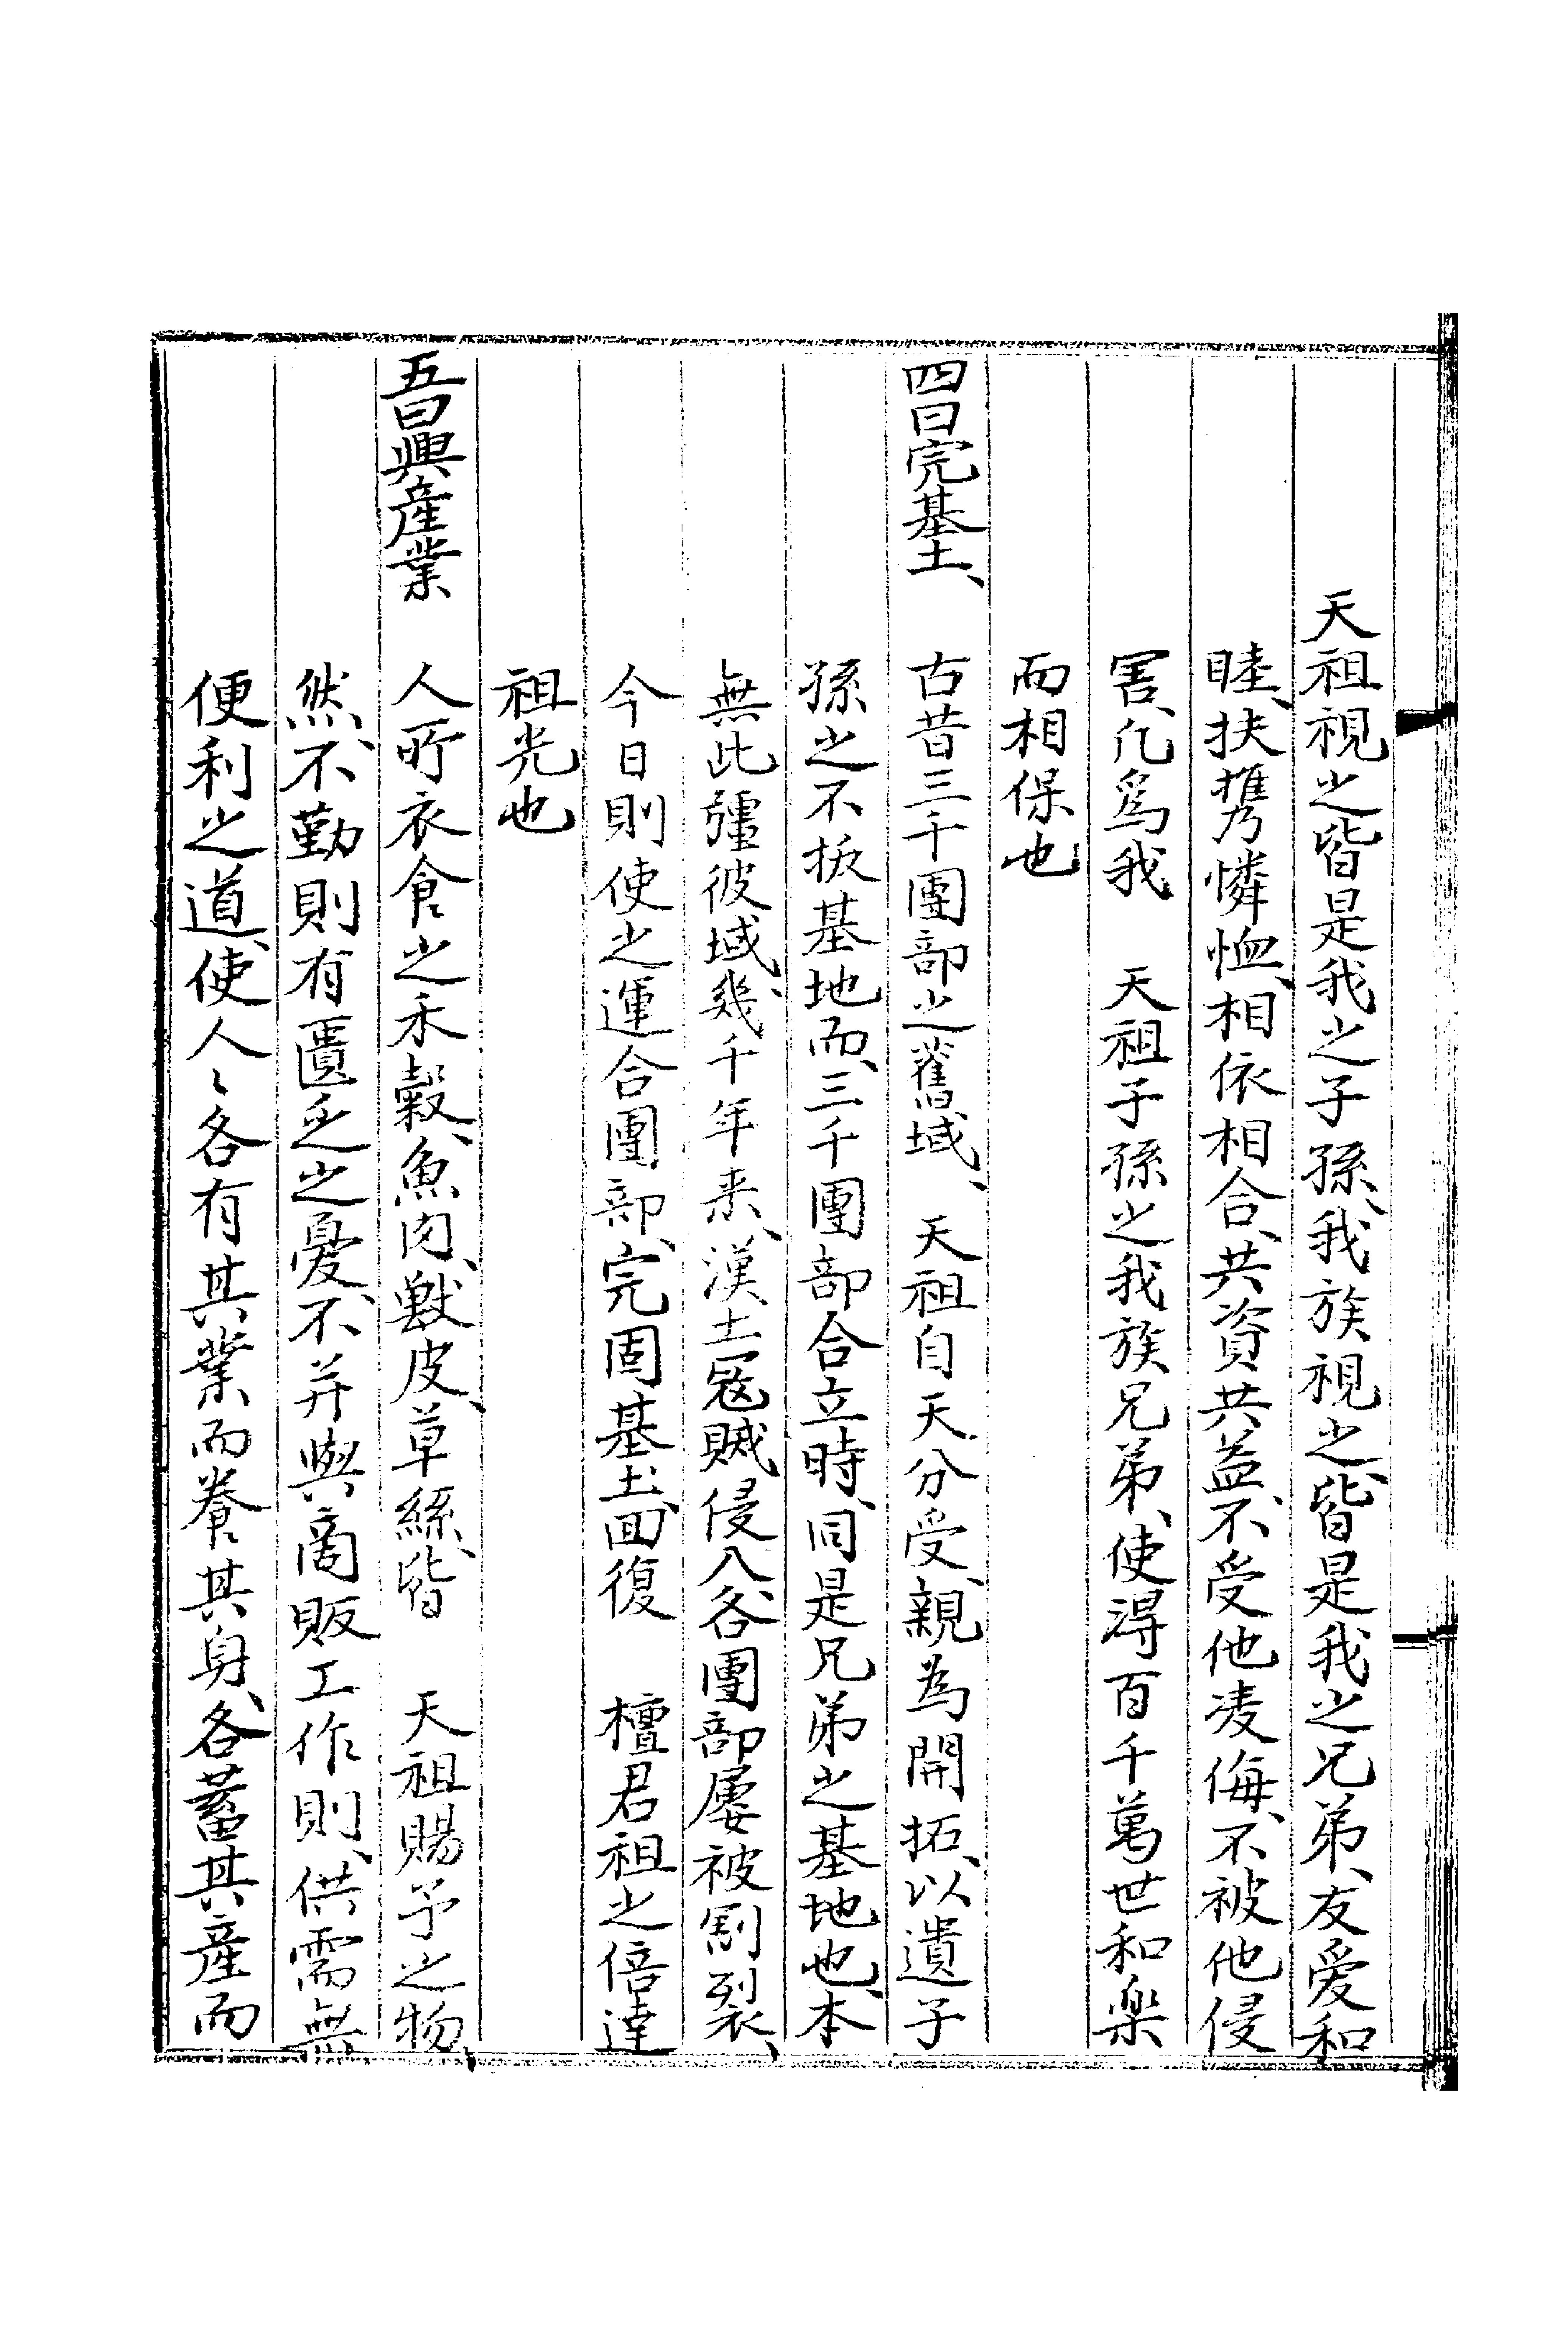 天祖視之皆是我之子孫、我族視之、皆是我之兄弟、友爱和
睦、扶携憐恤、相依相合、共資共益、不受他凌侮、不被他侵
害、凢爲我　天祖子孫之我族兄弟、使淂百千萬世和楽
而相保也
四曰完基土、　古昔三千團部之舊域、　天祖自天分受、親為開拓、以遺子
孫之不拔基地而、三千團部合立時、同是兄弟之基地也、本
無此彊彼域、幾千年来、漢土冦賊侵入各團部屢被割裂、
今日則使之運合團部、完固基土、囬復　檀君祖之倍達
祖光也
五曰興產業　人所衣食之禾穀、魚肉、獸皮、草絲、皆　天祖賜予之物、
然、不勤則有匱乏之憂、不并與商販工作則、供需無
便利之道、使人〻各有其業而養其身、各蓄其產而